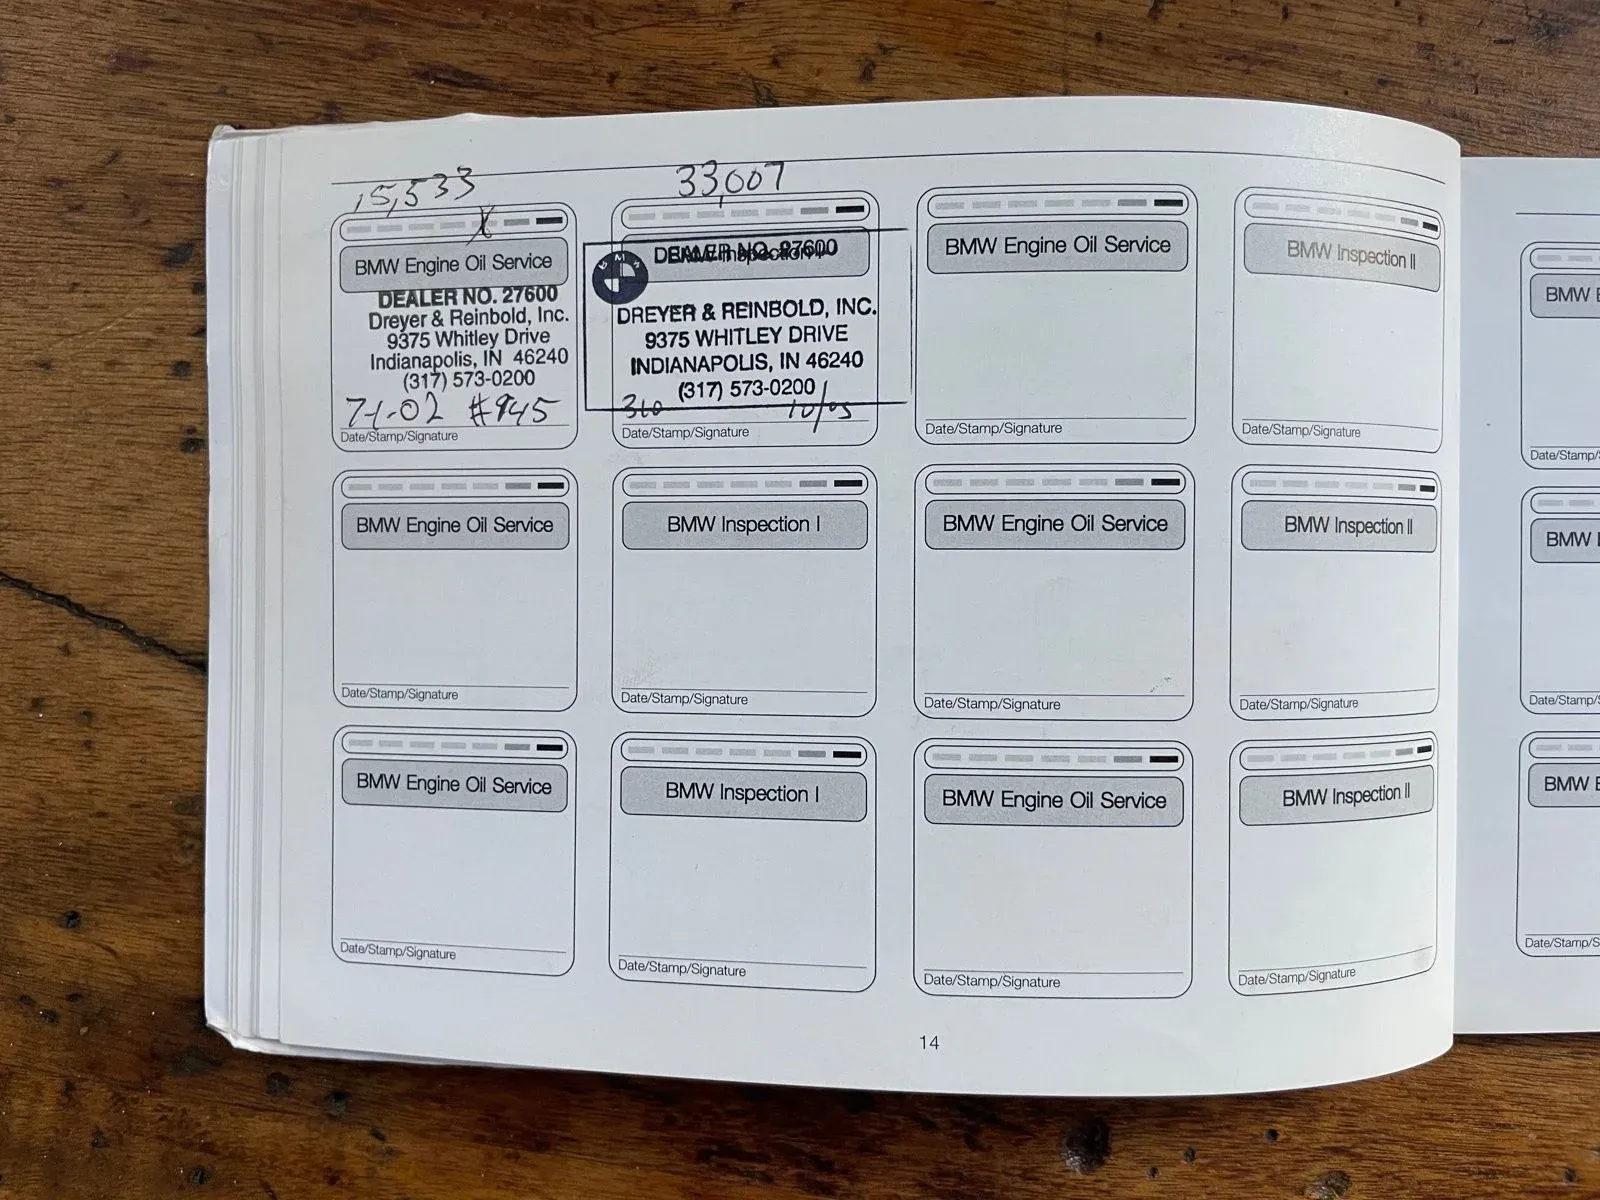 15,533
33,007
BMW Engine Oil Service
DEALER NO. 27600
Dreyer & Reinbold, Inc.
9375 Whitley Drive
Indianapolis, IN 46240
(317) 573-0200
7-1-02 #945
Date/Stamp/Signature
BMW Inspection I
DEALER NO. 27600
DREYER & REINBOLD, INC.
9375 WHITLEY DRIVE
INDIANAPOLIS, IN 46240
(317) 573-0200
10/05
Date/Stamp/Signature
BMW Engine Oil Service
Date/Stamp/Signature
BMW Inspection II
Date/Stamp/Signature
BMW Engine Oil Service
Date/Stamp/Signature
BMW Inspection I
Date/Stamp/Signature
BMW Engine Oil Service
Date/Stamp/Signature
BMW Inspection II
Date/Stamp/Signature
BMW Engine Oil Service
Date/Stamp/Signature
BMW Inspection I
Date/Stamp/Signature
BMW Engine Oil Service
Date/Stamp/Signature
BMW Inspection II
Date/Stamp/Signature
14
BMW
Date/Stamp/
BMW
Date/Stamp/
BMW
Date/Stamp/S